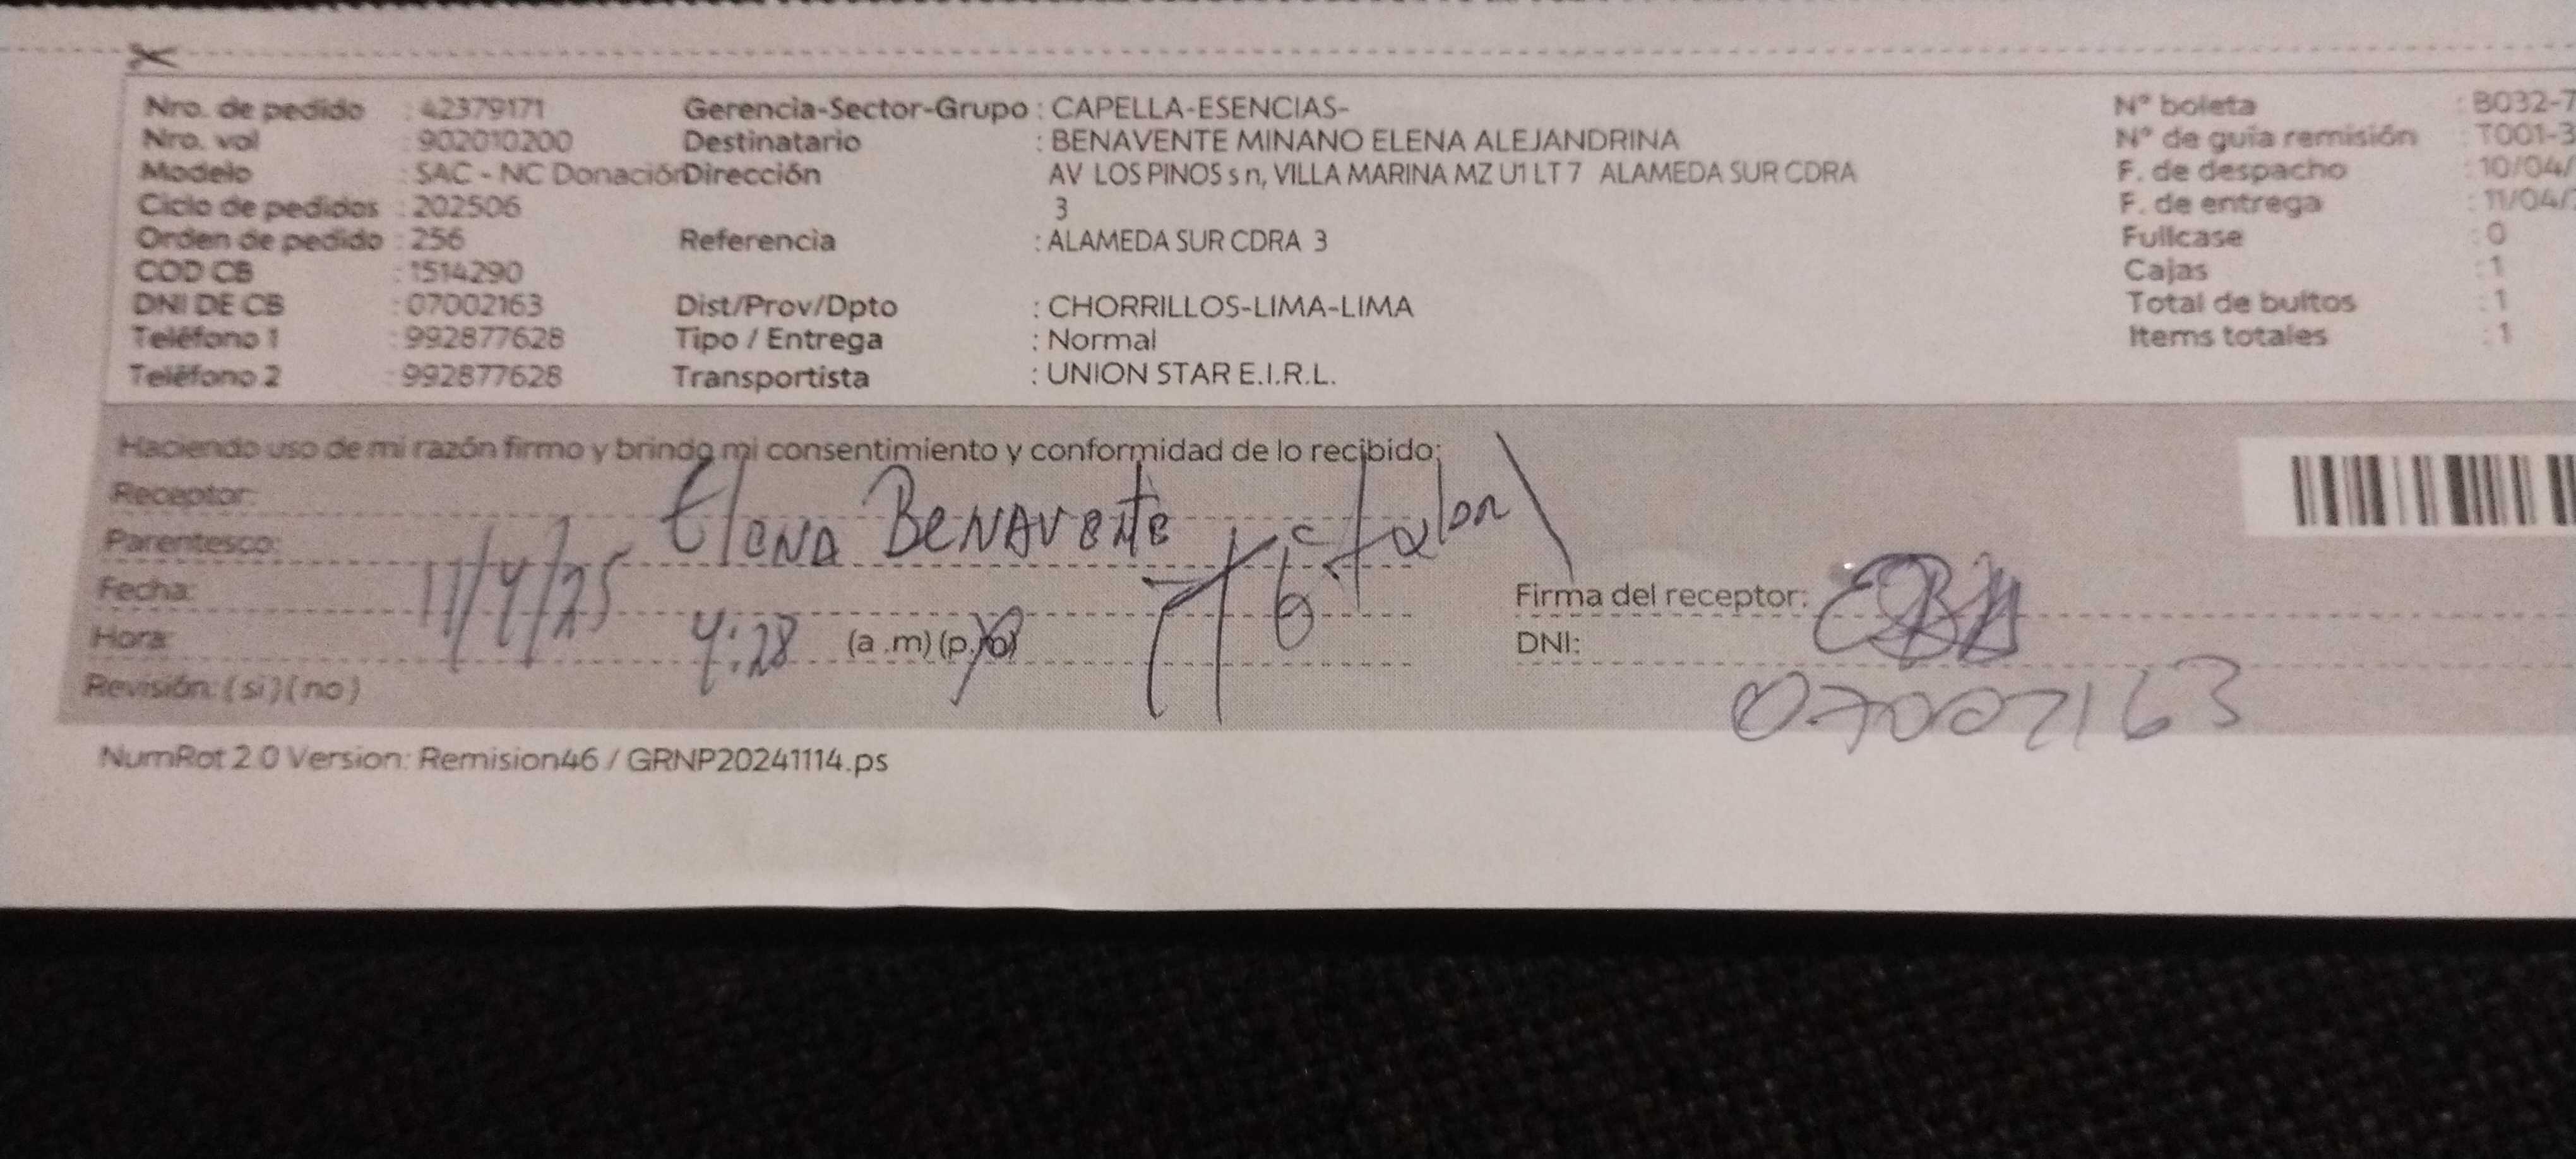 Nro. de pedido : 42379171 Gerencia-Sector-Grupo : CAPELLA-ESENCIAS- N° boleta : B032-7
Nro. vol : 902010200 Destinatario : BENAVENTE MINANO ELENA ALEJANDRINA N° de guía remisión : T001-3
Modelo : SAC - NC Donación Dirección AV LOS PINOS s n, VILLA MARINA MZ U1 LT 7 ALAMEDA SUR CDRA F. de despacho : 10/04/
Ciclo de pedidos : 202506 3 F. de entrega : 11/04/
Orden de pedido : 256 Referencia : ALAMEDA SUR CDRA 3 Fullcase : 0
COD CB : 1514290 Cajas : 1
DNI DE CB : 07002163 Dist/Prov/Dpto : CHORRILLOS-LIMA-LIMA Total de bultos : 1
Teléfono 1 : 992877628 Tipo / Entrega : Normal Items totales : 1
Teléfono 2 : 992877628 Transportista : UNION STAR E.I.R.L.
Haciendo uso de mi razón firmo y brindo mi consentimiento y conformidad de lo recibido:
Receptor: Elena Benavente
Parentesco:
Fecha: 11/4/25 Firma del receptor:
Hora: 4:28 (a .m) (p.m) DNI: 07002163
Revisión: ( si ) ( no )
NumRot 2.0 Version: Remision46 / GRNP20241114.ps